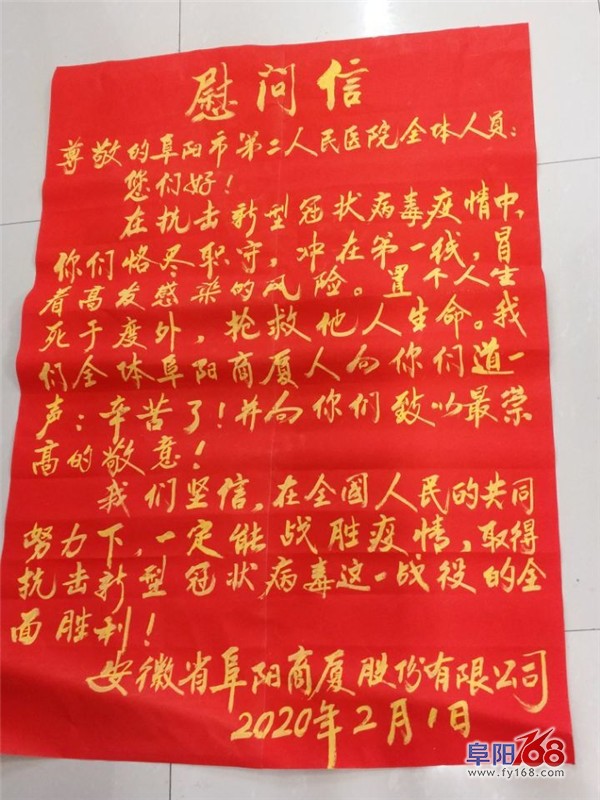 慰问信
尊敬的阜阳市第二人民医院全体人员：
您们好！
在抗击新型冠状病毒疫情中，
你们恪尽职守，冲在第一线，冒
着高发感染的风险。置个人生
死于度外，抢救他人生命。我
们全体阜阳商厦人向你们道一
声：辛苦了！并向你们致以最崇
高的敬意！
我们坚信，在全國人民的共同
努力下，一定能战胜疫情，取得
抗击新型冠状病毒这一战役的全
面胜利！
安徽省阜阳商厦股份有限公司
2020年2月1日
阜阳168
www.fy168.com